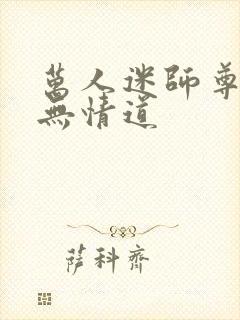 萬人迷師尊
無情道
薩科齊